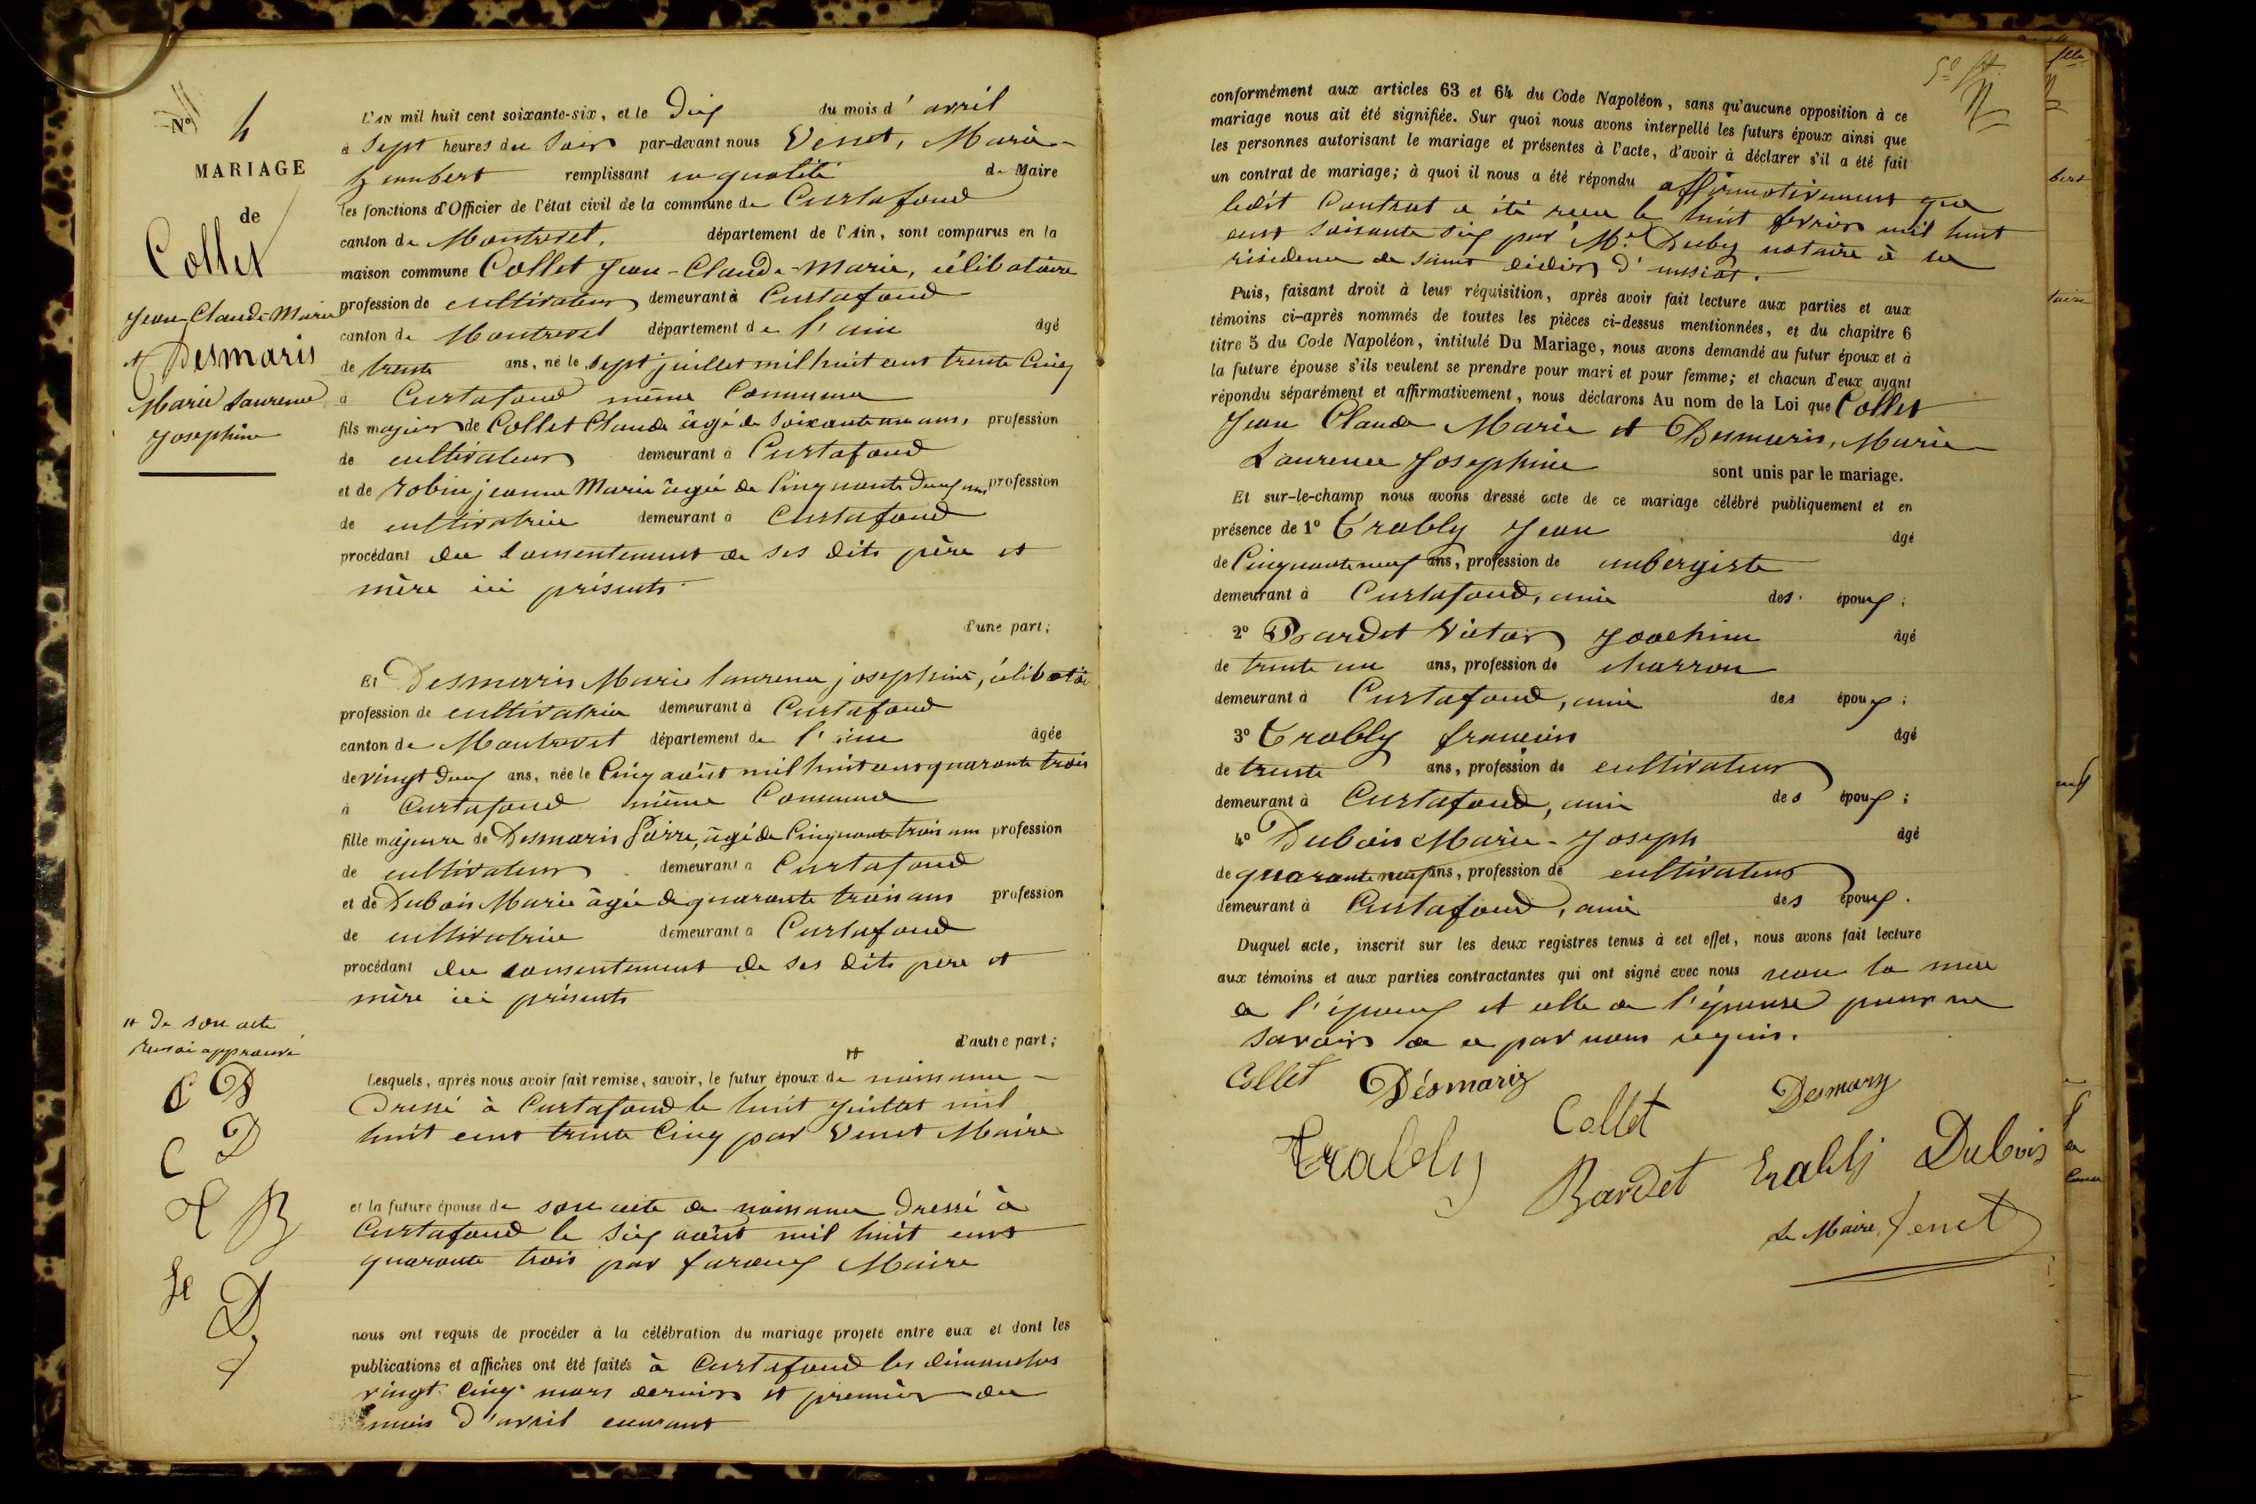 Nº 4
MARIAGE
de
Collet
Jean-Claude-Marie
et Desmaris
Marie Laurence
Josephine
L'AN mil huit cent soixante-six, et le Dix du mois d'avril
à Sept heures du Soir par-devant nous Venet, Marie-
humbert remplissant en qualité de Maire
les fonctions d'Officier de l'état civil de la commune de Curtafond
canton de Montrevel, département de l'Ain, sont comparus en la
maison commune Collet Jean-Claude-Marie, célibataire
profession de cultivateur demeurant à Curtafond
canton de Montrevel département de l'ain âgé
de trente ans, né le sept juillet mil huit cent trente Cinq
à Curtafond même Commune
fils majeur de Collet Claude âgé de soixante un ans, profession
de cultivateur demeurant à Curtafond
et de robin jeanne Marie âgée de Cinquante Deux ans profession
de cultivatrice demeurant à Curtafond
procédant du Consentement de ses dits père et
mère ici présents
d'une part;
Et Desmaris Marie laurence josephine, célibatai
profession de cultivatrice demeurant à Curtafond
canton de Montrevel département de l'ain âgée
de vingt Deux ans, née le Cinq août mil huit cent quarante trois
à Curtafond même Commune
fille majeure de Desmaris Pierre, âgé de Cinquante trois ans profession
de cultivateur demeurant à Curtafond
et de Dubois Marie âgée de quarante trois ans profession
de cultivatrice demeurant à Curtafond
procédant du consentement de ses dits père et
mère ici présents
d'autre part;
H de son acte
renvoi approuvé
C D
C D
T B
D
Lesquels, après nous avoir fait remise, savoir, le futur époux de H naissance
Dressé à Curtafond le huit Juillet mil
huit cent trente Cinq par Venet Maire
et la future épouse de son acte de naissance Dressé à
Curtafond le Six août mil huit cent
quarante trois par faroux Maire
nous ont requis de procéder à la célébration du mariage projeté entre eux et dont les
publications et affiches ont été faites à Curtafond les dimanches
vingt Cinq mars dernier et premier du
mois d'avril courant
conformément aux articles 63 et 64 du Code Napoléon, sans qu'aucune opposition à ce
mariage nous ait été signifiée. Sur quoi nous avons interpellé les futurs époux ainsi que
les personnes autorisant le mariage et présentes à l'acte, d'avoir à déclarer s'il a été fait
un contrat de mariage; à quoi il nous a été répondu affirmativement que
ledit Contrat a été reçu le huit fevrier mil huit
cent soixante six par Me Duby notaire à la
résidence de saint didier d'aussiat.
Puis, faisant droit à leur réquisition, après avoir fait lecture aux parties et aux
témoins ci-après nommés de toutes les pièces ci-dessus mentionnées, et du chapitre 6
titre 5 du Code Napoléon, intitulé Du Mariage, nous avons demandé au futur époux et à
la future épouse s'ils veulent se prendre pour mari et pour femme; et chacun d'eux ayant
répondu séparément et affirmativement, nous déclarons Au nom de la Loi que Collet
Jean Claude Marie et Desmaris, Marie
Laurence Josephine sont unis par le mariage.
Et sur-le-champ nous avons dressé acte de ce mariage célébré publiquement et en
présence de 1º Trably Jean âgé
de Cinquante neuf ans, profession de aubergiste
demeurant à Curtafond, ami des époux;
2º Bardet Victor Joachim âgé
de trente un ans, profession de charron
demeurant à Curtafond, ami des époux;
3º Trably francois âgé
de trente ans, profession de cultivateur
demeurant à Curtafond, ami des époux;
4º Dubois Marie-Joseph âgé
de quarante neuf ans, profession de cultivateur
demeurant à Curtafond, ami des époux.
Duquel acte, inscrit sur les deux registres tenus à cet effet, nous avons fait lecture
aux témoins et aux parties contractantes qui ont signé avec nous non la mère
de l'époux et celle de l'épouse pour ne
savoir de ce par nous requis.
Collet Désmaris Collet Desmary
Trably Bardet Trably Dubois
Le Maire Venet